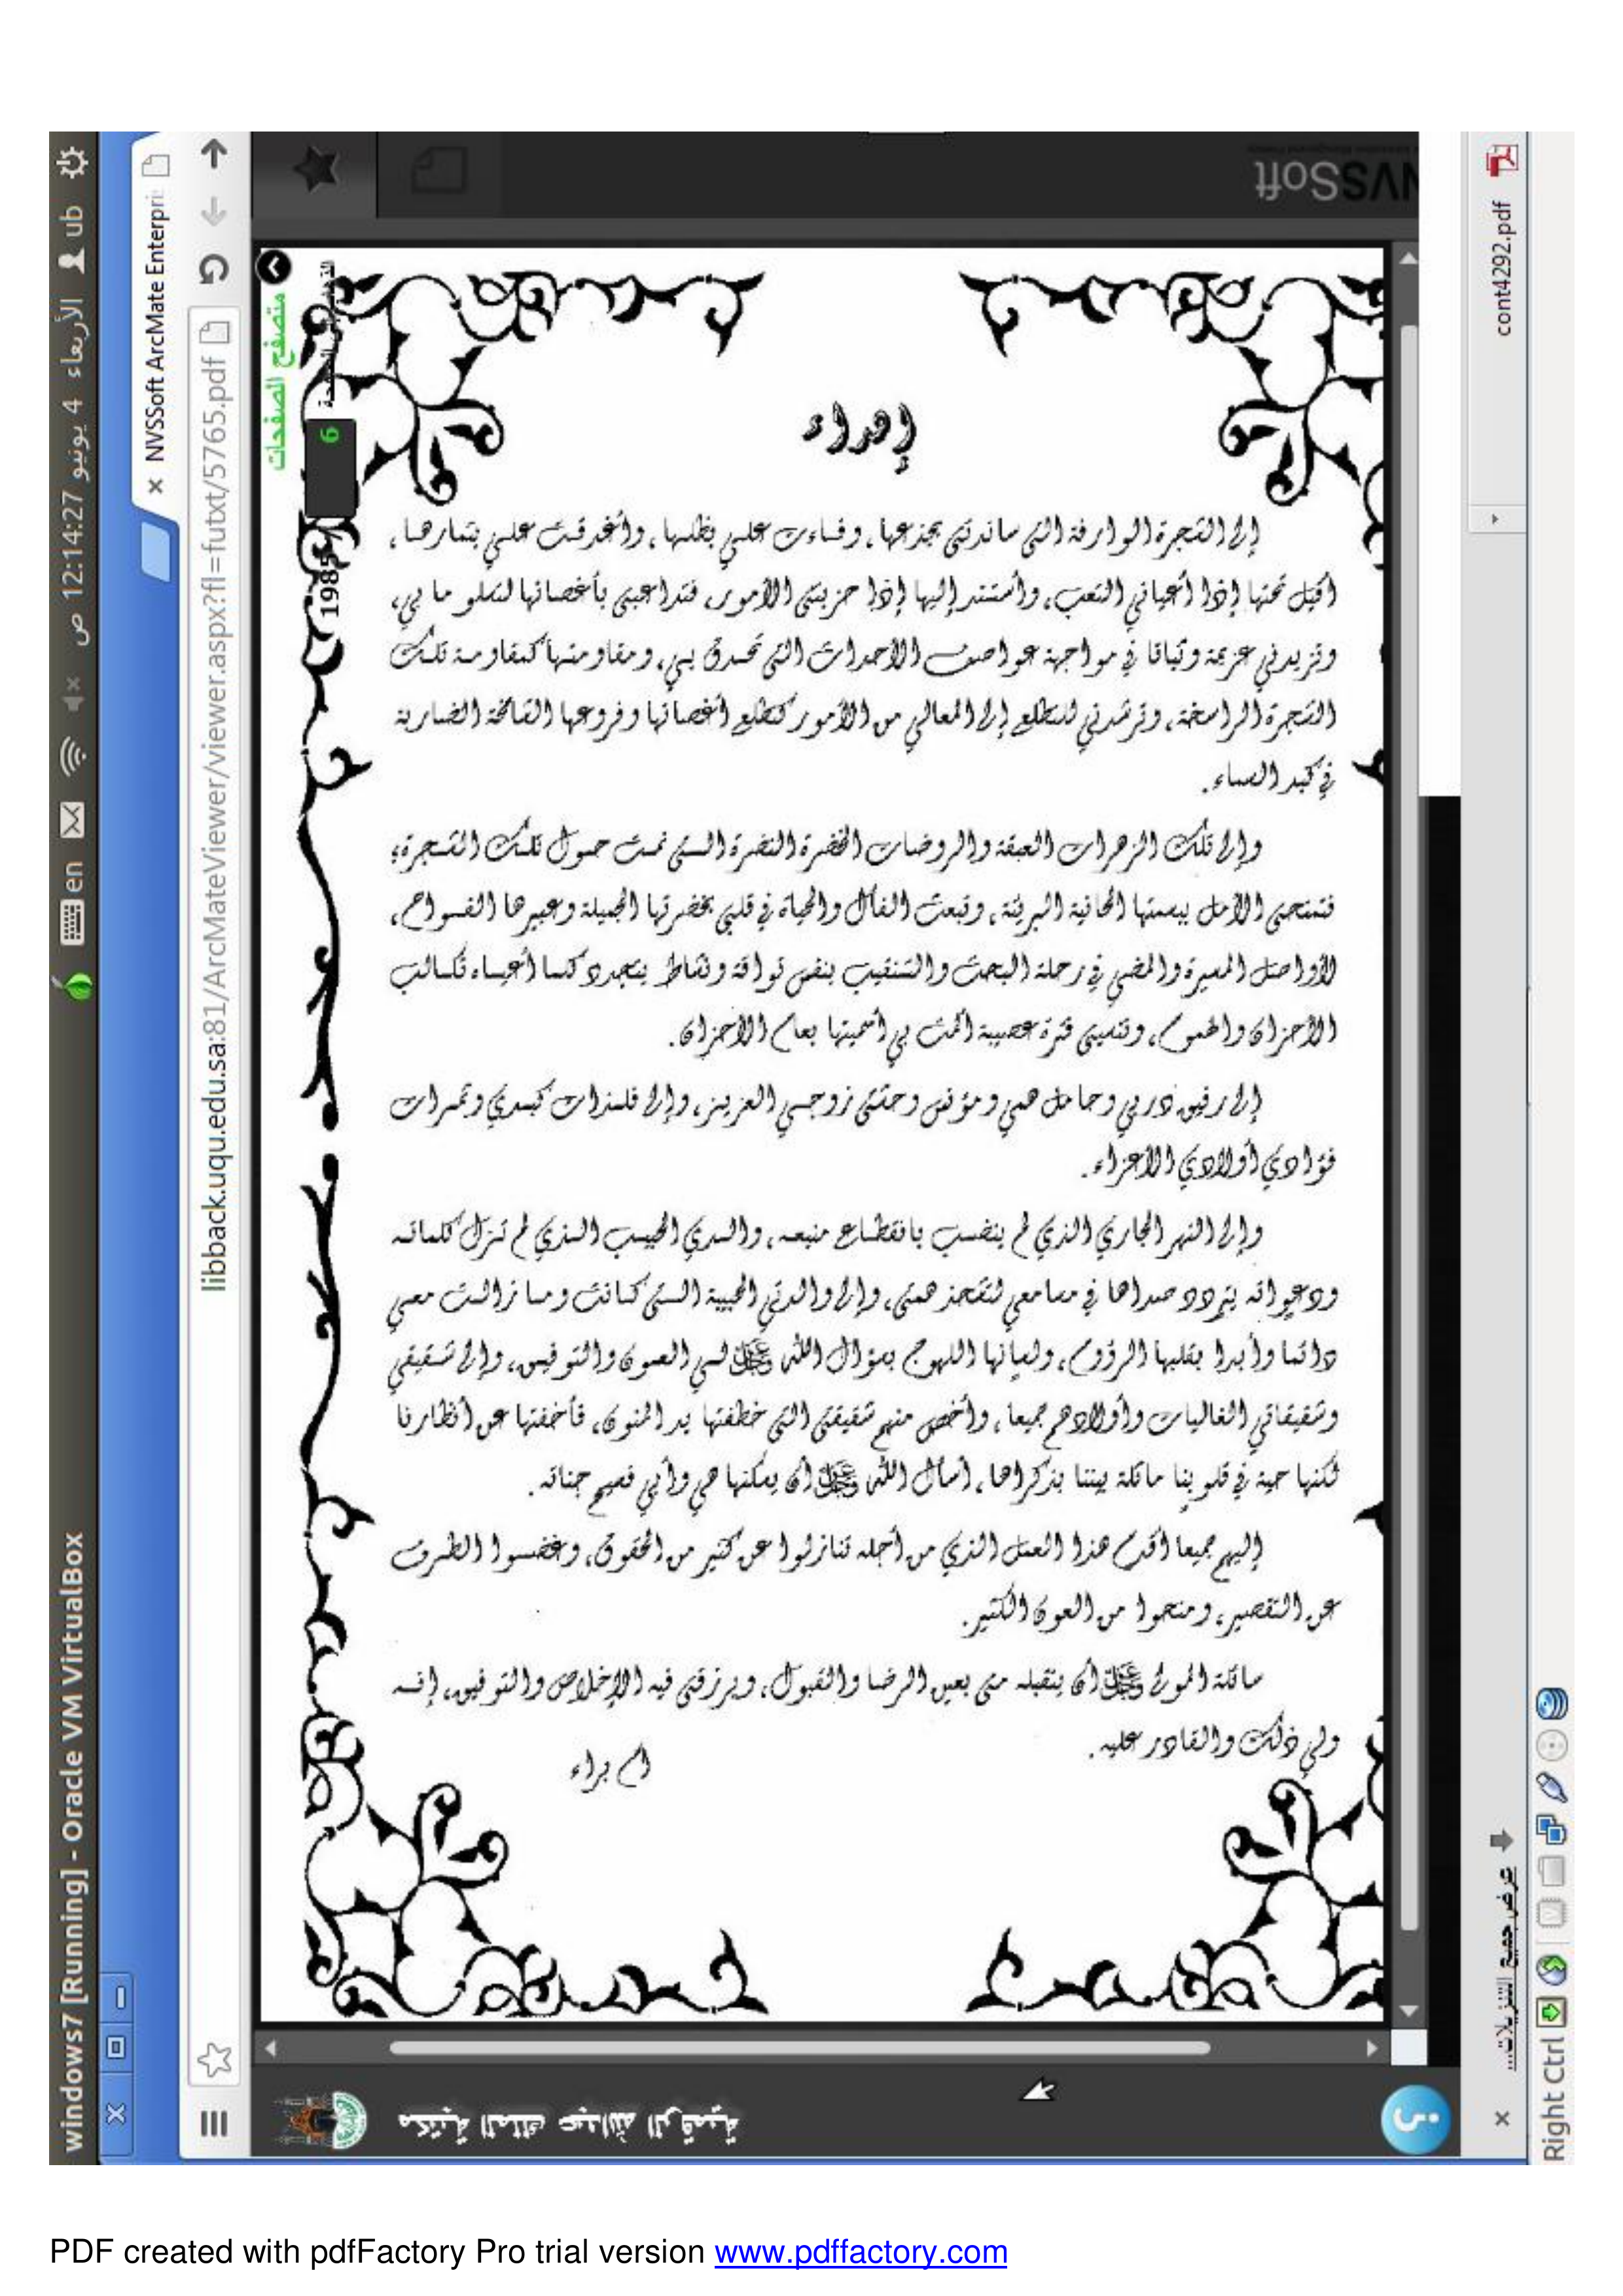 windows7 [Running] - Oracle VM VirtualBox
en
الأربعاء 4 يونيو 12:14:27 ص
ub
NVSSoft ArcMate Enterpri
libback.uqu.edu.sa:81/ArcMateViewer/viewer.aspx?fl=futxt/5765.pdf
NVSSoft
متصفح الصفحات
6
1985
إهداء
إلى الشجرة الوارفة التي ساندتني بجذعها، وفاءت علي بظلها، وأغدقت علي بثمارها،
أقيل تحتها إذا أعياني التعب، وأستند إليها إذا حزبتني الأمور، فتداعبني بأغصانها لتسلو ما بي،
وتزيدني عزيمة وثباتا في مواجهة عواصف الأحداث التي تحدق بي، ومقاومتها كمقاومة تلك
الشجرة الراسخة، وترشدني للتطلع إلى المعالي من الأمور كتطلع أغصانها وفروعها الشامخة الضاربة
في كبد السماء.
وإلى تلك الزهرات العبقة والروضات الخضرة النضرة التي نمت حول تلك الشجرة؛
فتمنحني الأمل ببسمتها الحانية البريئة، وتبعث الفأل والحياة في قلبي بخضرتها الجميلة وعبيرها الفواح،
لأواصل المسيرة والمضي في رحلة البحث والتنقيب بنفس تواقة ونشاط يتجدد كلما أعياه تكالب
الأحزان والهموم، وتنسيني فترة عصيبة ألمت بي أسميتها بعام الأحزان.
إلى رفيق دربي وحامل همي ومؤنس وحشتي زوجي العزيز، وإلى فلذات كبدي وثمرات
فؤادي أولادي الأعزاء.
وإلى النهر الجاري الذي لم ينضب بانقطاع منبعه، والدي الحبيب الذي لم تزل كلماته
ودعواته يتردد صداها في مسامعي لتشحذ همتي، وإلى والدتي الحبيبة التي كانت وما زالت معي
دائما وأبدا بقلبها الرؤوم، ولسانها اللهوج بسؤال الله ﷻ لي العون والتوفيق، وإلى شقيقي
وشقيقاتي الغاليات وأولادهم جميعا، وأخص منهم شقيقتي التي خطفتها يد المنون، فأخفتها عن أنظارنا
لكنها حية في قلوبنا ماثلة بيننا بذكراها، أسأل الله ﷻ أن يسكنها هي وأبي فسيح جناته.
إليهم جميعا أقدم هذا العمل الذي من أجله تنازلوا عن كثير من الحقوق، وغضوا الطرف
عن التقصير، ومنحوا من العون الكثير.
سائلة المولى ﷻ أن يتقبله مني بعين الرضا والقبول، ويرزقني فيه الإخلاص والتوفيق، إنه
ولي ذلك والقادر عليه.
أم براء
مكتبة الملك عبدالله الرقمية
cont4292.pdf
عرض جميع التنزيلات...
Right Ctrl
PDF created with pdfFactory Pro trial version www.pdffactory.com